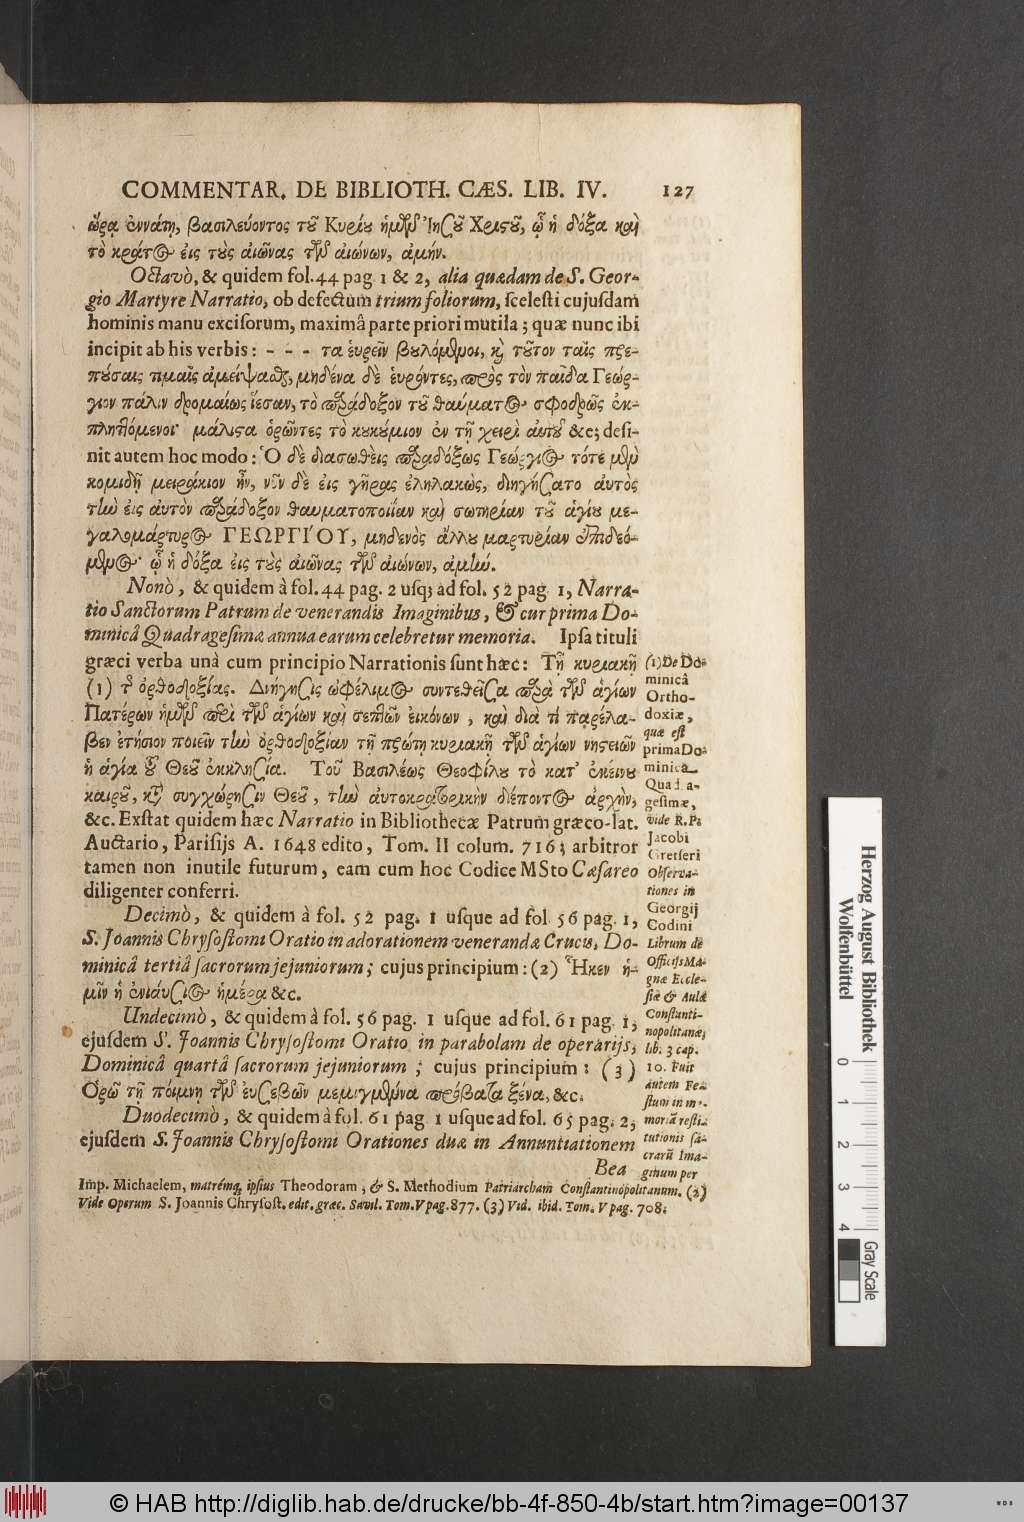 COMMENTAR. DE BIBLIOTH. CÆS. LIB. IV. 127
ὥρᾳ ἐννάτῃ, βασιλεύοντος τοῦ Κυρίου ἡμῶν Ἰησοῦ Χριστοῦ, ᾧ ἡ δόξα καὶ
τὸ κράτος εἰς τοὺς αἰῶνας τῶν αἰώνων, ἀμήν.
Octavò, & quidem fol. 44 pag. 1 & 2, alia quædam de S. Geor-
gio Martyre Narratio, ob defectum trium foliorum, ſceleſti cujuſdam
hominis manu exciſorum, maximâ parte priori mutila; quæ nunc ibi
incipit ab his verbis: - - - τα ἑυρεῖν βουλόμενοι, καὶ τοῦτον ταῖς πρε-
πούσαις τιμαῖς ἀμείψασθαι, μηδένα δὲ ἑυρόντες, πρὸς τὸν παῖδα Γεώρ-
γιον πάλιν δρομαίως ἵεσαν, τὸ παράδοξον τοῦ θαύματος σφοδρῶς ἐκ-
πληττόμενοι· μάλιστα ὁρῶντες τὸ κουκούμιον ἐν τῇ χειρὶ αὐτοῦ &c; deſi-
nit autem hoc modo: Ὁ δὲ διασωθεὶς παραδόξως Γεώργιος τότε μὲν
κομιδῇ μειράκιον ἦν, νῦν δὲ εἰς γῆρας ἐληλακὼς, διηγήσατο αὐτὸς
τὴν εἰς αὐτὸν παράδοξον θαυματοποιΐαν καὶ σωτηρίαν τοῦ ἁγίου με-
γαλομάρτυρος ΓΕΩΡΓΙΌΥ, μηδενὸς ἄλλου μαρτυρίαν ἐπιδεό-
μενος· ᾧ ἡ δόξα εἰς τοὺς αἰῶνας τῶν αἰώνων, ἀμήν.
Nonò, & quidem à fol. 44 pag. 2 uſq; ad fol. 52 pag. 1, Narra-
tio Sanctorum Patrum de venerandis Imaginibus, & cur prima Do-
minicâ Quadrageſimæ annua earum celebretur memoria. Ipſa tituli
græci verba unà cum principio Narrationis ſunt hæc: Τῇ κυριακῇ
(1) τῆς ὀρθοδοξίας. Διήγησις ὠφέλιμος συντεθεῖσα παρὰ τῶν ἁγίων
Πατέρων ἡμῶν περὶ τῶν ἁγίων καὶ σεπτῶν εἰκόνων, καὶ διὰ τί παρέλα-
βεν ἐτήσιον ποιεῖν τὴν ὀρθοδοξίαν τῇ πρώτῃ κυριακῇ τῶν ἁγίων νηστειῶν
ἡ ἁγία τοῦ Θεοῦ ἐκκλησία. Τοῦ Βασιλέως Θεοφίλου τὸ κατ' ἐκείνου
καιροῦ, κατὰ συγχώρησιν Θεοῦ, τὴν αὐτοκρατορικὴν διέποντος ἀρχὴν,
&c. Exſtat quidem hæc Narratio in Bibliothecæ Patrum græco-lat.
Auctario, Pariſijs A. 1648 edito, Tom. II colum. 716; arbitror
tamen non inutile futurum, eam cum hoc Codice MSto Cæſareo
diligenter conferri.
Decimò, & quidem à fol. 52 pag. 1 uſque ad fol. 56 pag. 1,
S. Joannis Chryſoſtomi Oratio in adorationem venerandæ Crucis, Do-
minicâ tertiâ ſacrorum jejuniorum; cujus principium: (2) Ἧκεν ἡ-
μῖν ἡ ἐνιαύσιος ἡμέρα &c.
Undecimò, & quidem à fol. 56 pag. 1 uſque ad fol. 61 pag. 1,
ejuſdem S. Joannis Chryſoſtomi Oratio in parabolam de operarijs,
Dominicâ quartâ ſacrorum jejuniorum; cujus principium: (3)
Ὁρῶ τῇ ποίμνῃ τῶν ἐυσεβῶν μεμιγμένα πρόβατα ξένα, &c.
Duodecimò, & quidem à fol. 61 pag. 1 uſque ad fol. 65 pag. 2,
ejuſdem S. Joannis Chryſoſtomi Orationes duæ in Annuntiationem
Bea
(1) De Do-
minicâ
Ortho-
doxiæ,
quæ eſt
prima Do-
minica
Quadra-
geſimæ,
vide R. P.
Jacobi
Gretſeri
Obſerva-
tiones in
Georgij
Codini
Librum de
Officijs Ma-
gnæ Eccle-
ſiæ & Aulæ
Conſtanti-
nopolitanæ,
lib. 3 cap.
10. Fuit
autem Fe-
ſtum in me-
moriã reſti-
tutionis ſa-
crarũ Ima-
ginum per
Imp. Michaelem, matrémq; ipſius Theodoram, & S. Methodium Patriarcham Conſtantinopolitanum. (2)
Vide Operum S. Joannis Chryſoſt. edit. græc. Savil. Tom. V pag. 877. (3) Vid. ibid. Tom. V pag. 708.
Herzog August Bibliothek
Wolfenbüttel
0 1 2 3 4
Gray Scale
© HAB http://diglib.hab.de/drucke/bb-4f-850-4b/start.htm?image=00137